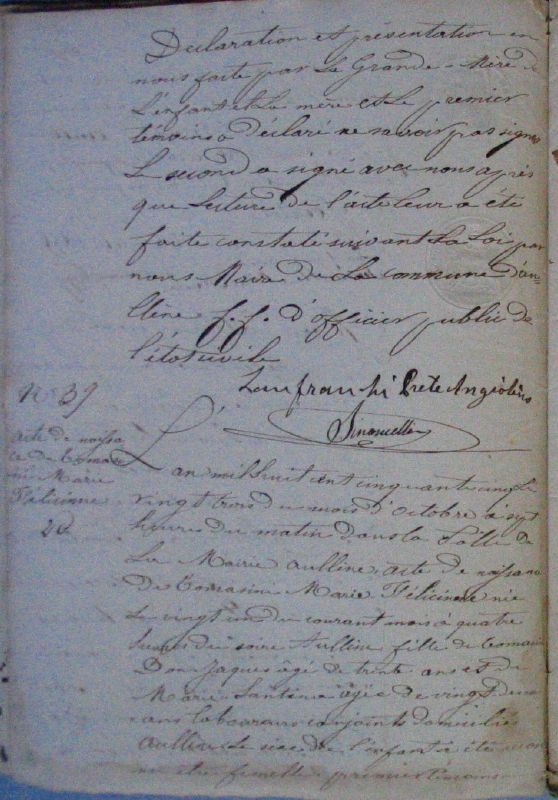 Declaration et présentation en
nous faite par La Grande-Mère de
L'enfant et La mère et Le premier
témoins a déclaré ne savoir pas signer
Le second a signé avec nous après
que Lecture de l'acte leur a été
faite constaté suivant La Loi par
nous Maire de La commune d'au-
llène f.f. d'officier public de
l'état civile
Lanfranchi Prete Angiolino
N° 39
acte de naissan
ce de Tomasi
ni Marie
Félicienne
L'an mil huit cent cinquante cinq Le
vingt trois du mois d'octobre à sept
heures du matin dans La Salle de
La Mairie aullène, acte de naissance
de Tomasini Marie Félicienne née
Le vingt un du courant mois à quatre
heures du soire Aullène fille de Tomasini
Don Jaques âgé de trente ans et de
Marie Santina âgée de vingt
ans laboureurs conjoints domiciliés
aullène Le sexe de l'enfant a été
être femelle premier témoins